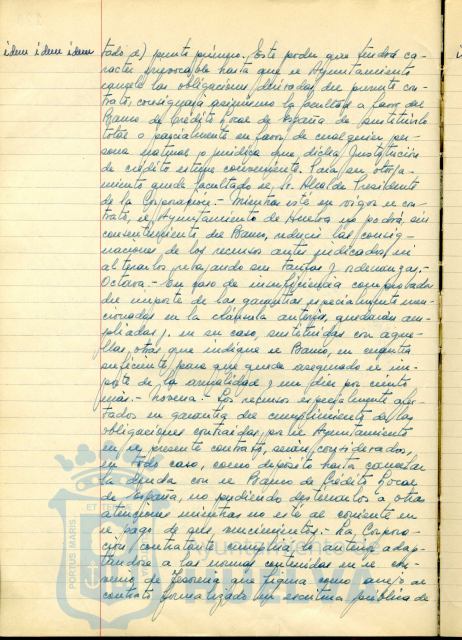 idem idem idem
tado d) punto primero. Este poder que tendrá ca-
racter irrevocable hasta que el Ayuntamiento
cumpla las obligaciones derivadas del presente con-
trato, consignará asimismo la facultad a favor del
Banco de Crédito Local de España de sustituirlo
total o parcialmente en favor de cualquier per-
sona natural o jurídica que dicha Institución
de crédito estime conveniente. Para su otorga-
miento queda facultado el Sr. Alcalde Presidente
de la Corporación.- Mientras esté en vigor el con-
trato, el Ayuntamiento de Huelva no podrá, sin
consentimiento del Banco, reducir las consig-
naciones de los recursos antes indicados, ni
alterarlos rebajando sus tarifas y ordenanzas.-
Octava.- En caso de insuficiencia comprobada
del importe de las garantías especialmente men-
cionadas en la cláusula anterior, quedarán am-
pliadas y, en su caso, sustituidas con aque-
llas otras que indique el Banco, en cuantía
suficiente para que quede asegurado el im-
porte de la anualidad y un diez por ciento
más.- Novena.- Los recursos especialmente afec-
tados en garantía del cumplimiento de las
obligaciones contraidas por el Ayuntamiento
en el presente contrato, serán considerados,
en todo caso, como depósito hasta cancelar
la deuda con el Banco de Crédito Local
de España, no pudiendo destinarlos a otras
atenciones mientras no esté al corriente en
el pago de sus vencimientos.- La Corpora-
ción contratante cumplirá lo anterior adap-
tándose a las normas contenidas en el con-
venio de Tesorería que figura como anejo al
contrato formalizado en escritura pública de
PORTUS MARIS
ET TERRAE
HUELVA